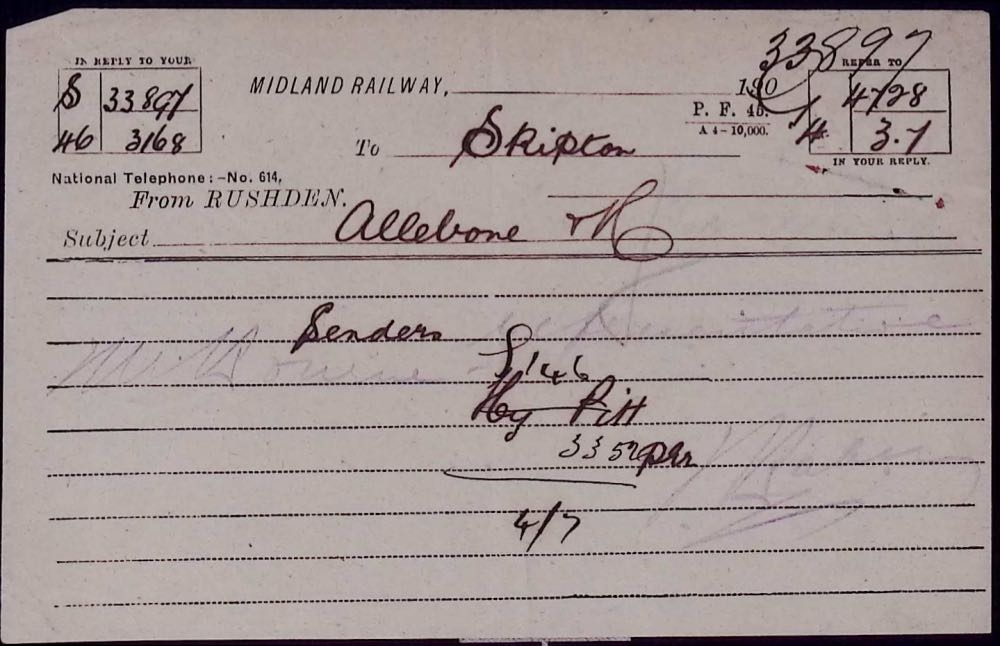 33897
IN REPLY TO YOUR
REFER TO
S 33897
46 3168
MIDLAND RAILWAY, 190
P. F. 4B.
A 4-10,000.
4728
4 3.7
IN YOUR REPLY.
To Skipton
National Telephone:-No. 614,
From RUSHDEN.
Subject Allebone
Senders
S 146
Hy Pitt
335
4/7